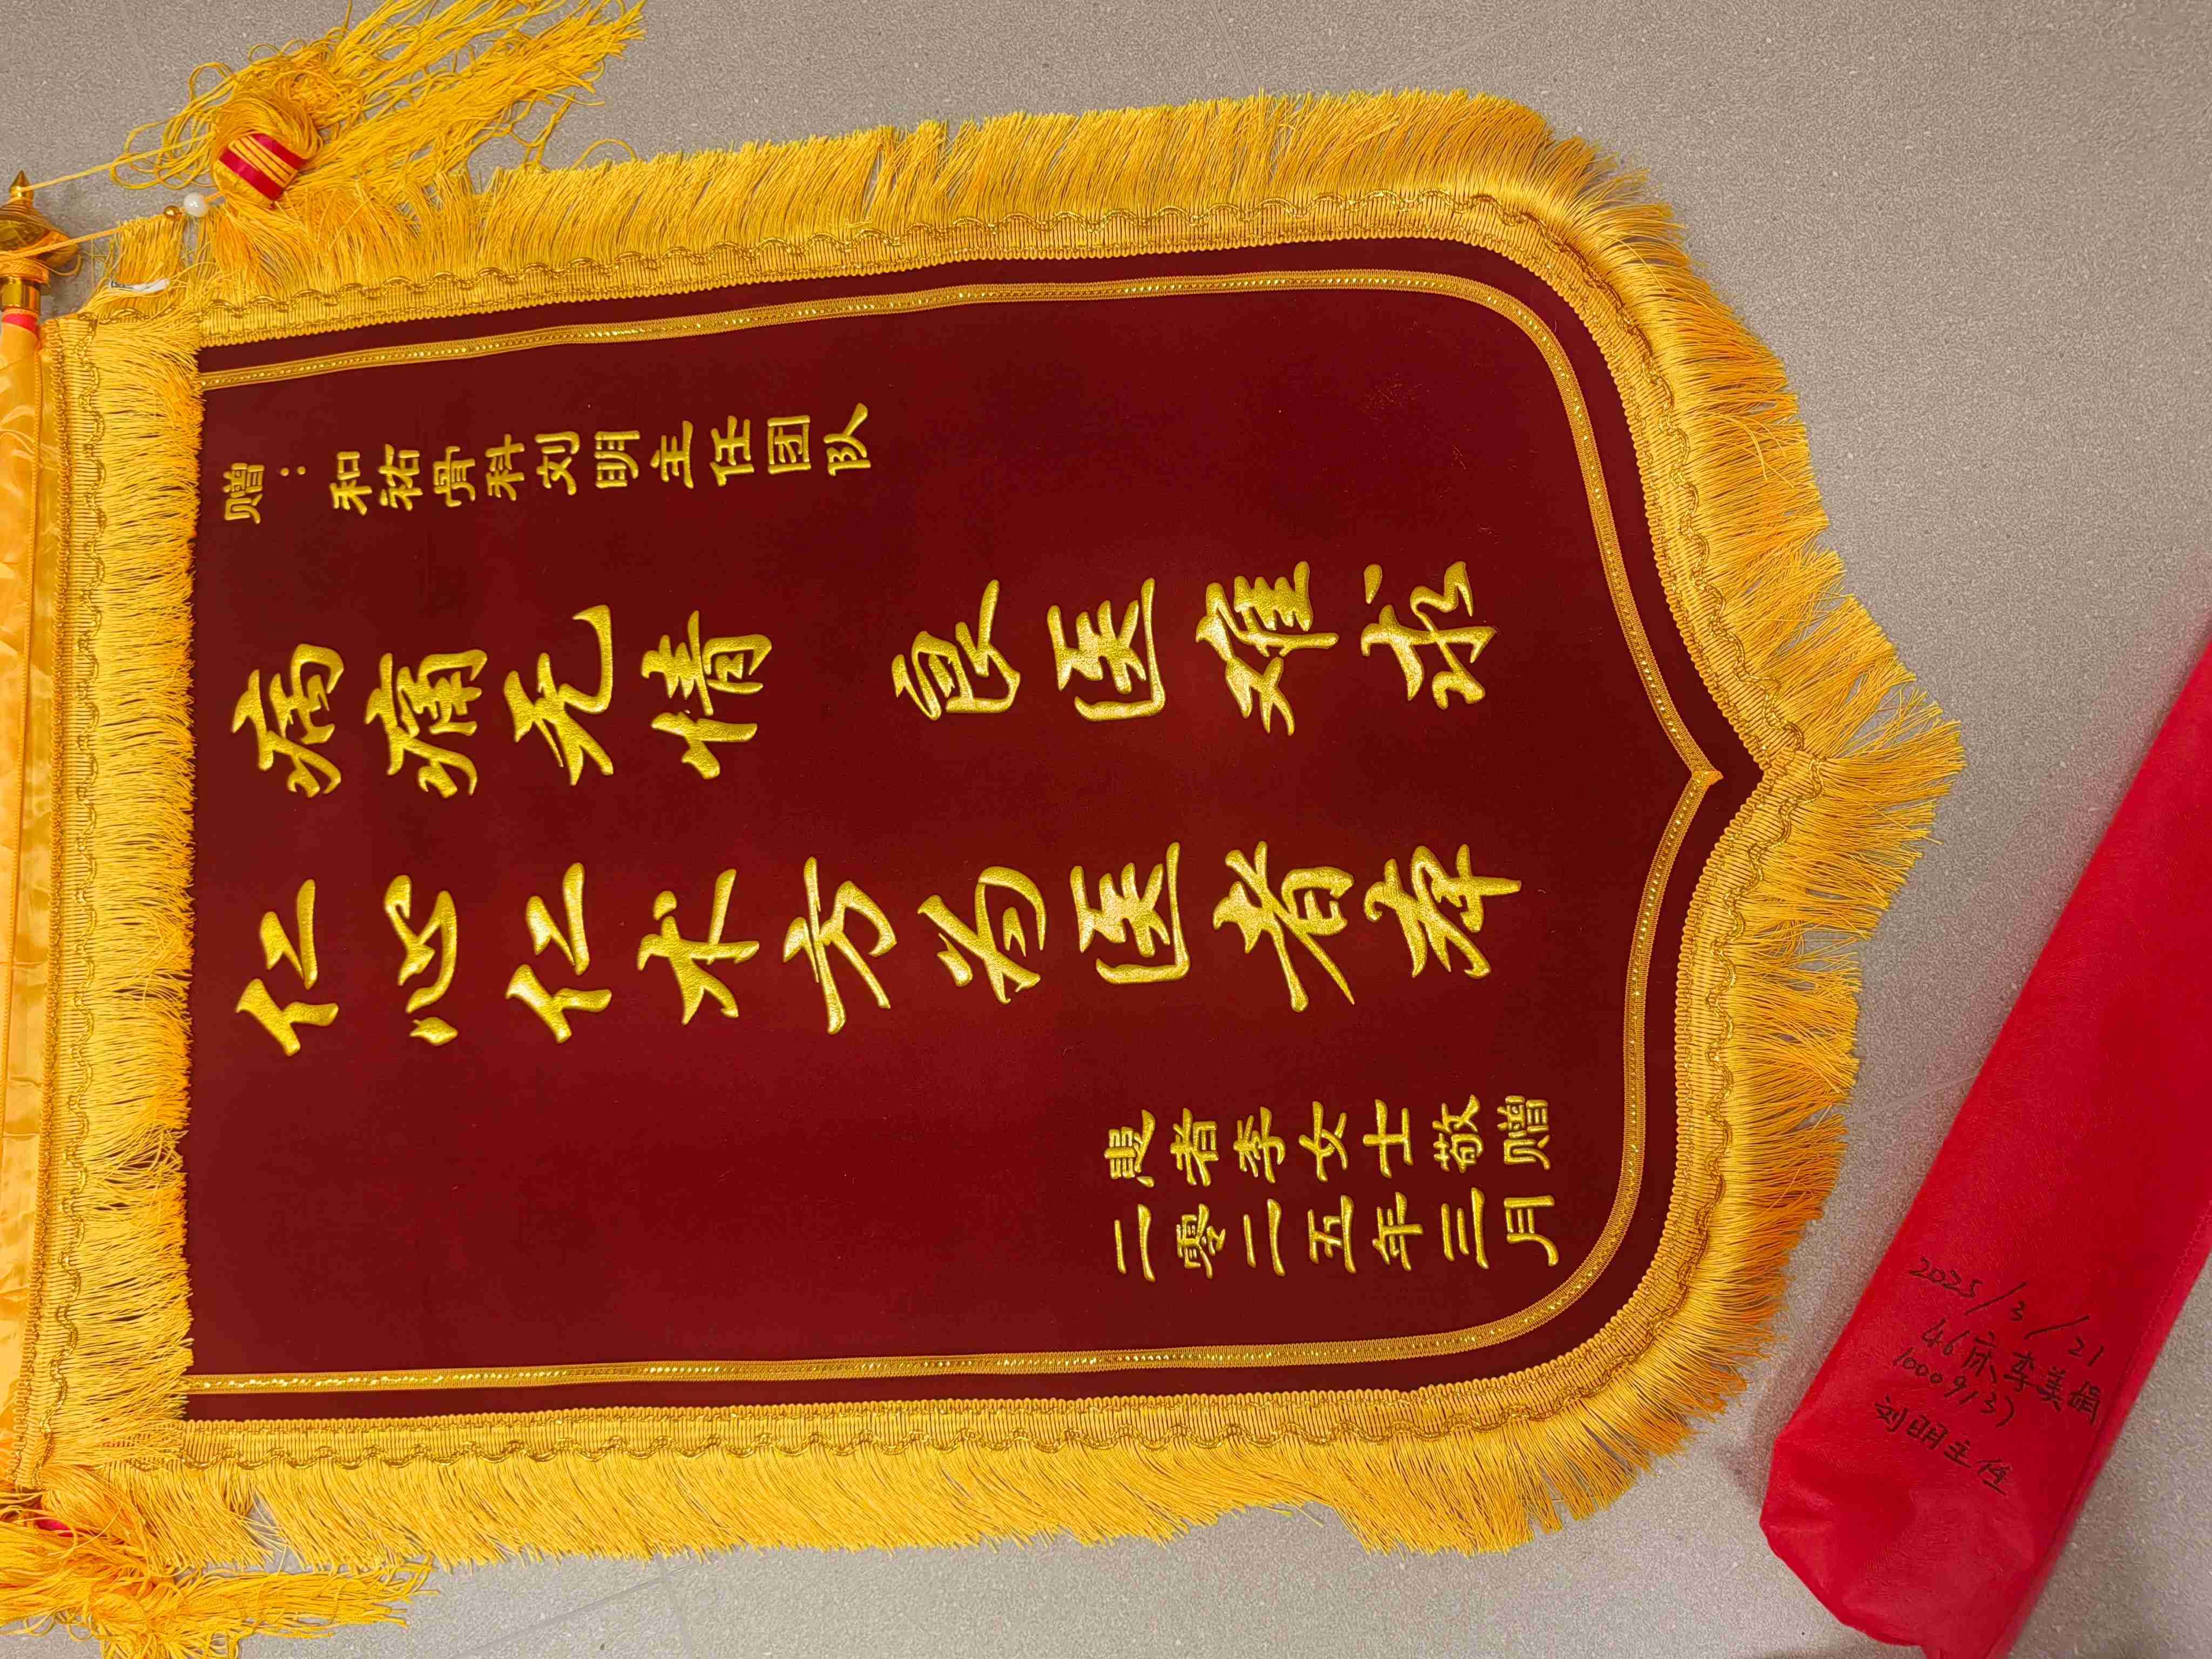 赠：和祐骨科刘明主任团队
病痛无情 良医难求
仁心仁术方为医者率
患者李女士敬赠
二零二五年三月
2025/3/21
46床李美娟
10009137
刘明主任